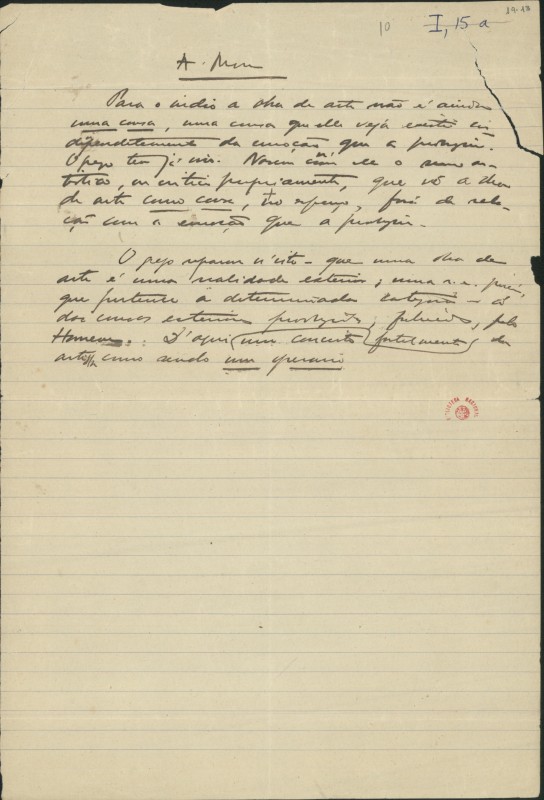 19-13
10 I, 15 a
A. Mora
Para o indio a obra de arte não é ainda
uma cousa, uma cousa que elle veja existir in-
dependentemente da emoção que a produziu.
O grego tem já isso. Nasce com elle o senso
critico propriamente, que vê a obra
de arte como cousa, no espaço, fóra de rela-
ção com a emoção que a produziu.
O grego reparou n'isto – que uma obra de
arte é uma realidade exterior; uma r. e., porém,
que pertence a determinada categoria – á
das cousas exteriores produzidas, fabricadas, pelo
Homem. D'aqui um conceito fortemente do
artista como sendo um operario
BIBLIOTECA NACIONAL